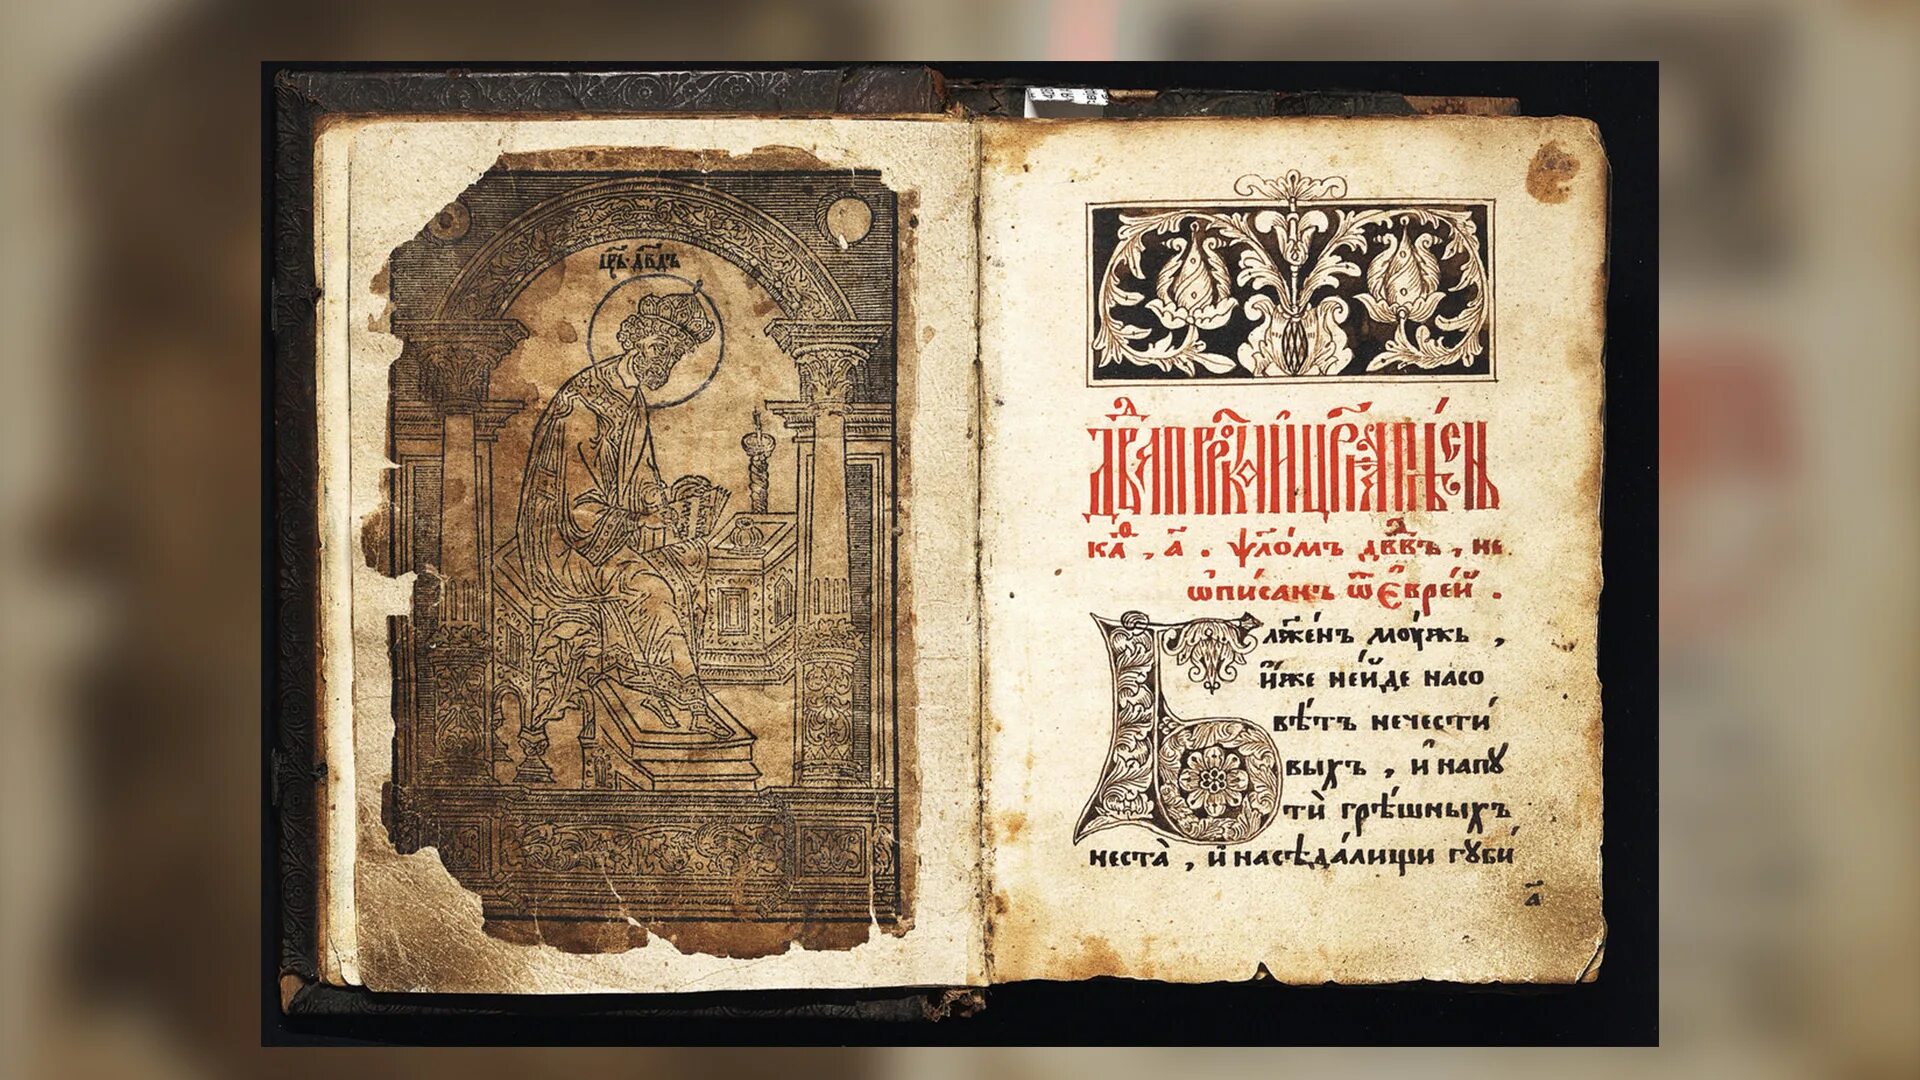 црь двдъ
двда пррока и цра песнь
каѳ, а҃. ѱло́мъ двдвъ, не
ѡпи́санъ ѿ є҆вре́й.
Блже́нъ мꙋжь,
и҆́же неи́де насо
вѣ́тъ нечести́
выхъ, и҆ напꙋ
ти̑ грѣ́шныхъ
неста̀, и҆ насѣда́лищи гꙋби́
а҃